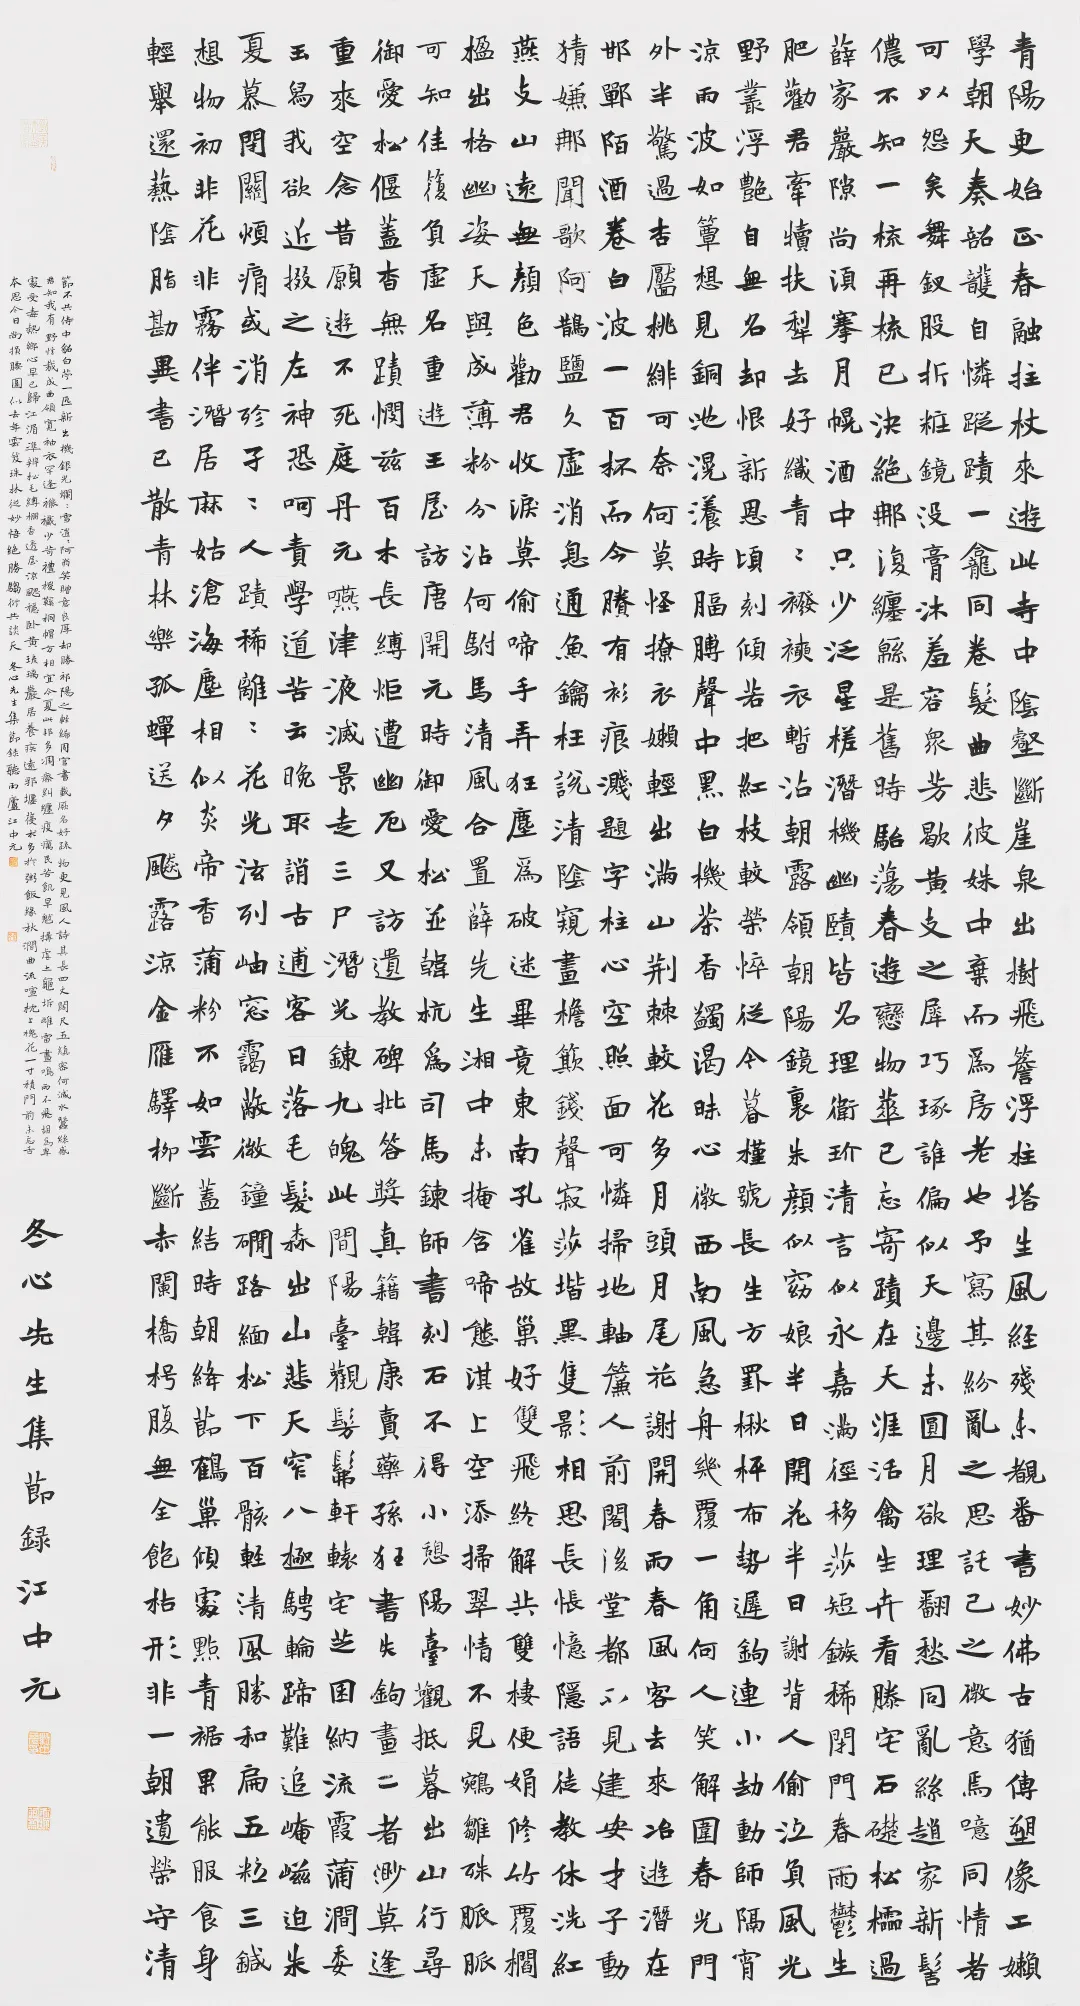 青陽更始正春融拄杖來遊此寺中陰壑斷崖泉出樹飛簷浮柱塔生風経殘未覩番書妙佛古猶傳塑像工嬾
學朝天奏韶頀自憐蹤蹟一龕同卷髮曲悲彼姝中棄而爲房老也予寫其紛亂之思託己之微意焉噫同情者
可以怨矣舞釵股折粧鏡没膏沐羞容衆芳歇黃支之犀巧琢誰偏似天邊未圓月欲理翻愁同亂絲趙家新髻
儂不知一梳再梳已決絕那復纏緜是舊時駘蕩春遊戀物華已忘寄蹟在天涯活禽生卉看滕宅石礎松櫺過
薛家巖隙尚須搴月幌酒中只少泛星槎潛機幽賾皆名理衛玠清言似永嘉滿徑移莎短鏃稀閉門春雨鬱生
肥勸君牽犢扶犁去好織青〻襏襫衣暫沾朝露領朝陽鏡裏朱顏似窈娘半日開花半日謝背人偷泣負風光
野叢浮艷自無名却恨新恩頃刻傾若把紅枝較榮悴從今暮槿號長生方罫楸枰布勢遲鉤連小劫動師隔宵
涼雨波如簟想見銅池滉瀁時腷膊聲中黑白機茶香蠲渴昧心微西南風急舟幾覆一角何人笑解圍春光門
外半驚過杏靨桃緋可奈何莫怪撩衣嬾輕出滿山荆棘較花多月頭月尾花謝開春雨春風客去來冶遊潛在
邯鄲陌酒卷白波一百杯而今賸有衫痕濺題字柱心空照面可憐掃地軸簾人前閣後堂都不見建安才子動
猜嫌那聞歌阿鵲鹽久虛消息通魚鑰枉説清陰窺畫檐欺錢聲寂莎堦黑隻影相思長悵憶隱語徒教休洗紅
燕支山遠無顏色勸君收淚莫偷啼手弄狂塵爲破迷畢竟東南孔雀故巢好雙飛終解共雙棲便娟修竹覆欄
楹出格幽姿天與成薄粉分沾何駙馬清風合置薛先生湘中未掩含啼態淇上空添掃翠情不見鵷雛殊脈脈
可知佳箙負虛名重遊王屋訪唐開元時御愛松並韓杭爲司馬鍊師書刻石不得小憩陽臺觀抵暮出山行尋
御愛松偃蓋杳無蹟憫兹百木長縛炬遭幽厄又訪遺教碑批答獎真籍韓康賣藥孫狂書失鉤畫二者渺莫逢
重來空念昔願遊不死庭丹元嚥津液滅景走三尸潛光鍊九魄此間陽臺觀髣髴軒轅宅芝囷納流霞蒲澗委
玉舄我欲近掇之左神恐呵責學道苦云晚取誚古逋客日落毛髮森出山悲天窄八極騁輪蹄難追崦嵫迫朱
夏慕閉關煩痟或消殄孑〻人蹟稀離〻花光泫列岫窓靄敞微鐘磵路緬松下百骸輕清風勝和扁五粒三鍼
想物初非花非霧伴潛居麻姑滄海塵相似炎帝香蒲粉不如雲蓋結時朝絳節鶴巢傾處點青裾果能服食身
輕舉還爇陰脂勘異書已散青林樂孤蟬送夕飈露涼金雁驛柳斷赤闌橋枵腹無全飽枯形非一朝遺榮守清
節不共侍中貂白苧一匹新出機銀光爛〻雪
君知我有野性裁成曲領寬袖衣
鄉心早已歸江湄
本恩今日尚損腰圍似去年雲笈珠林從妙悟絶勝騶衍共談天 冬心先生集節錄聽雨廬江中元
冬心先生集節録江中元